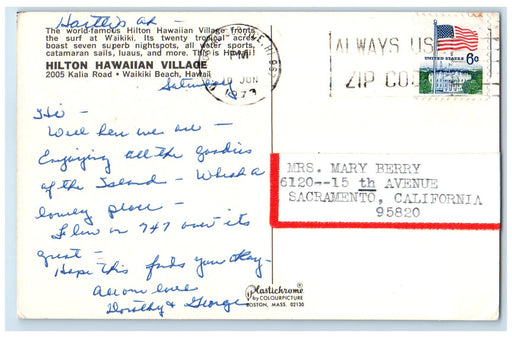 The world-famous Hilton Hawaiian Village fronts
the surf at Waikiki. Its twenty tropical acres
boast seven superb nightspots, all water sports,
catamaran sails, luaus, and more. This is Hawaii!
HILTON HAWAIIAN VILLAGE
2005 Kalia Road • Waikiki Beach, Hawaii
Saturday
PM
10 JUN
1973
ALWAYS USE
ZIP CODE
UNITED STATES 6¢
Hi -
Well here we are -
Enjoying all the goodies
of the Island - What a
lovely place -
Flew on 747 over its
great -
Hope this finds you okay -
All our love
Dorothy & George
MRS. MARY BERRY
6120--15 th AVENUE
SACRAMENTO, CALIFORNIA
95820
Plastichrome
by COLOURPICTURE
BOSTON, MASS. 02130